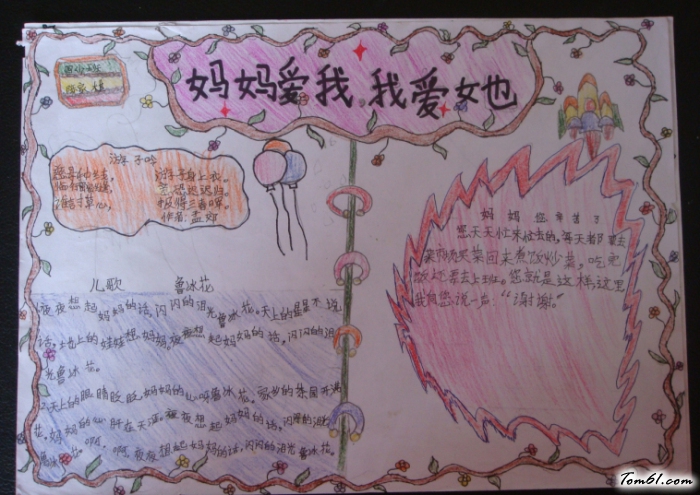 妈妈爱我,我爱她
游子吟
游子身上衣。
意恐迟迟归。
报得三春晖。
作者:孟郊
妈妈您辛苦了
您天天忙来忙去的,每天都要去
菜回来煮饭炒菜,吃完
饭还要去上班。您就是这样,这里
我向您说一声:“谢谢。”
儿歌 鲁冰花
夜夜想起妈妈的话,闪闪的泪光鲁冰花。天上的星星不说
话,地上的娃娃想妈妈。夜夜想起妈妈的话,闪闪的泪
光鲁冰花。
天上的眼睛眨眨,妈妈的心呀鲁冰花。家乡的茶园开满
花,妈妈的心肝在天涯。夜夜想起妈妈的话,闪闪的泪光
鲁冰花。啊,啊,夜夜想起妈妈的话,闪闪的泪光鲁冰花。
Tom61.com